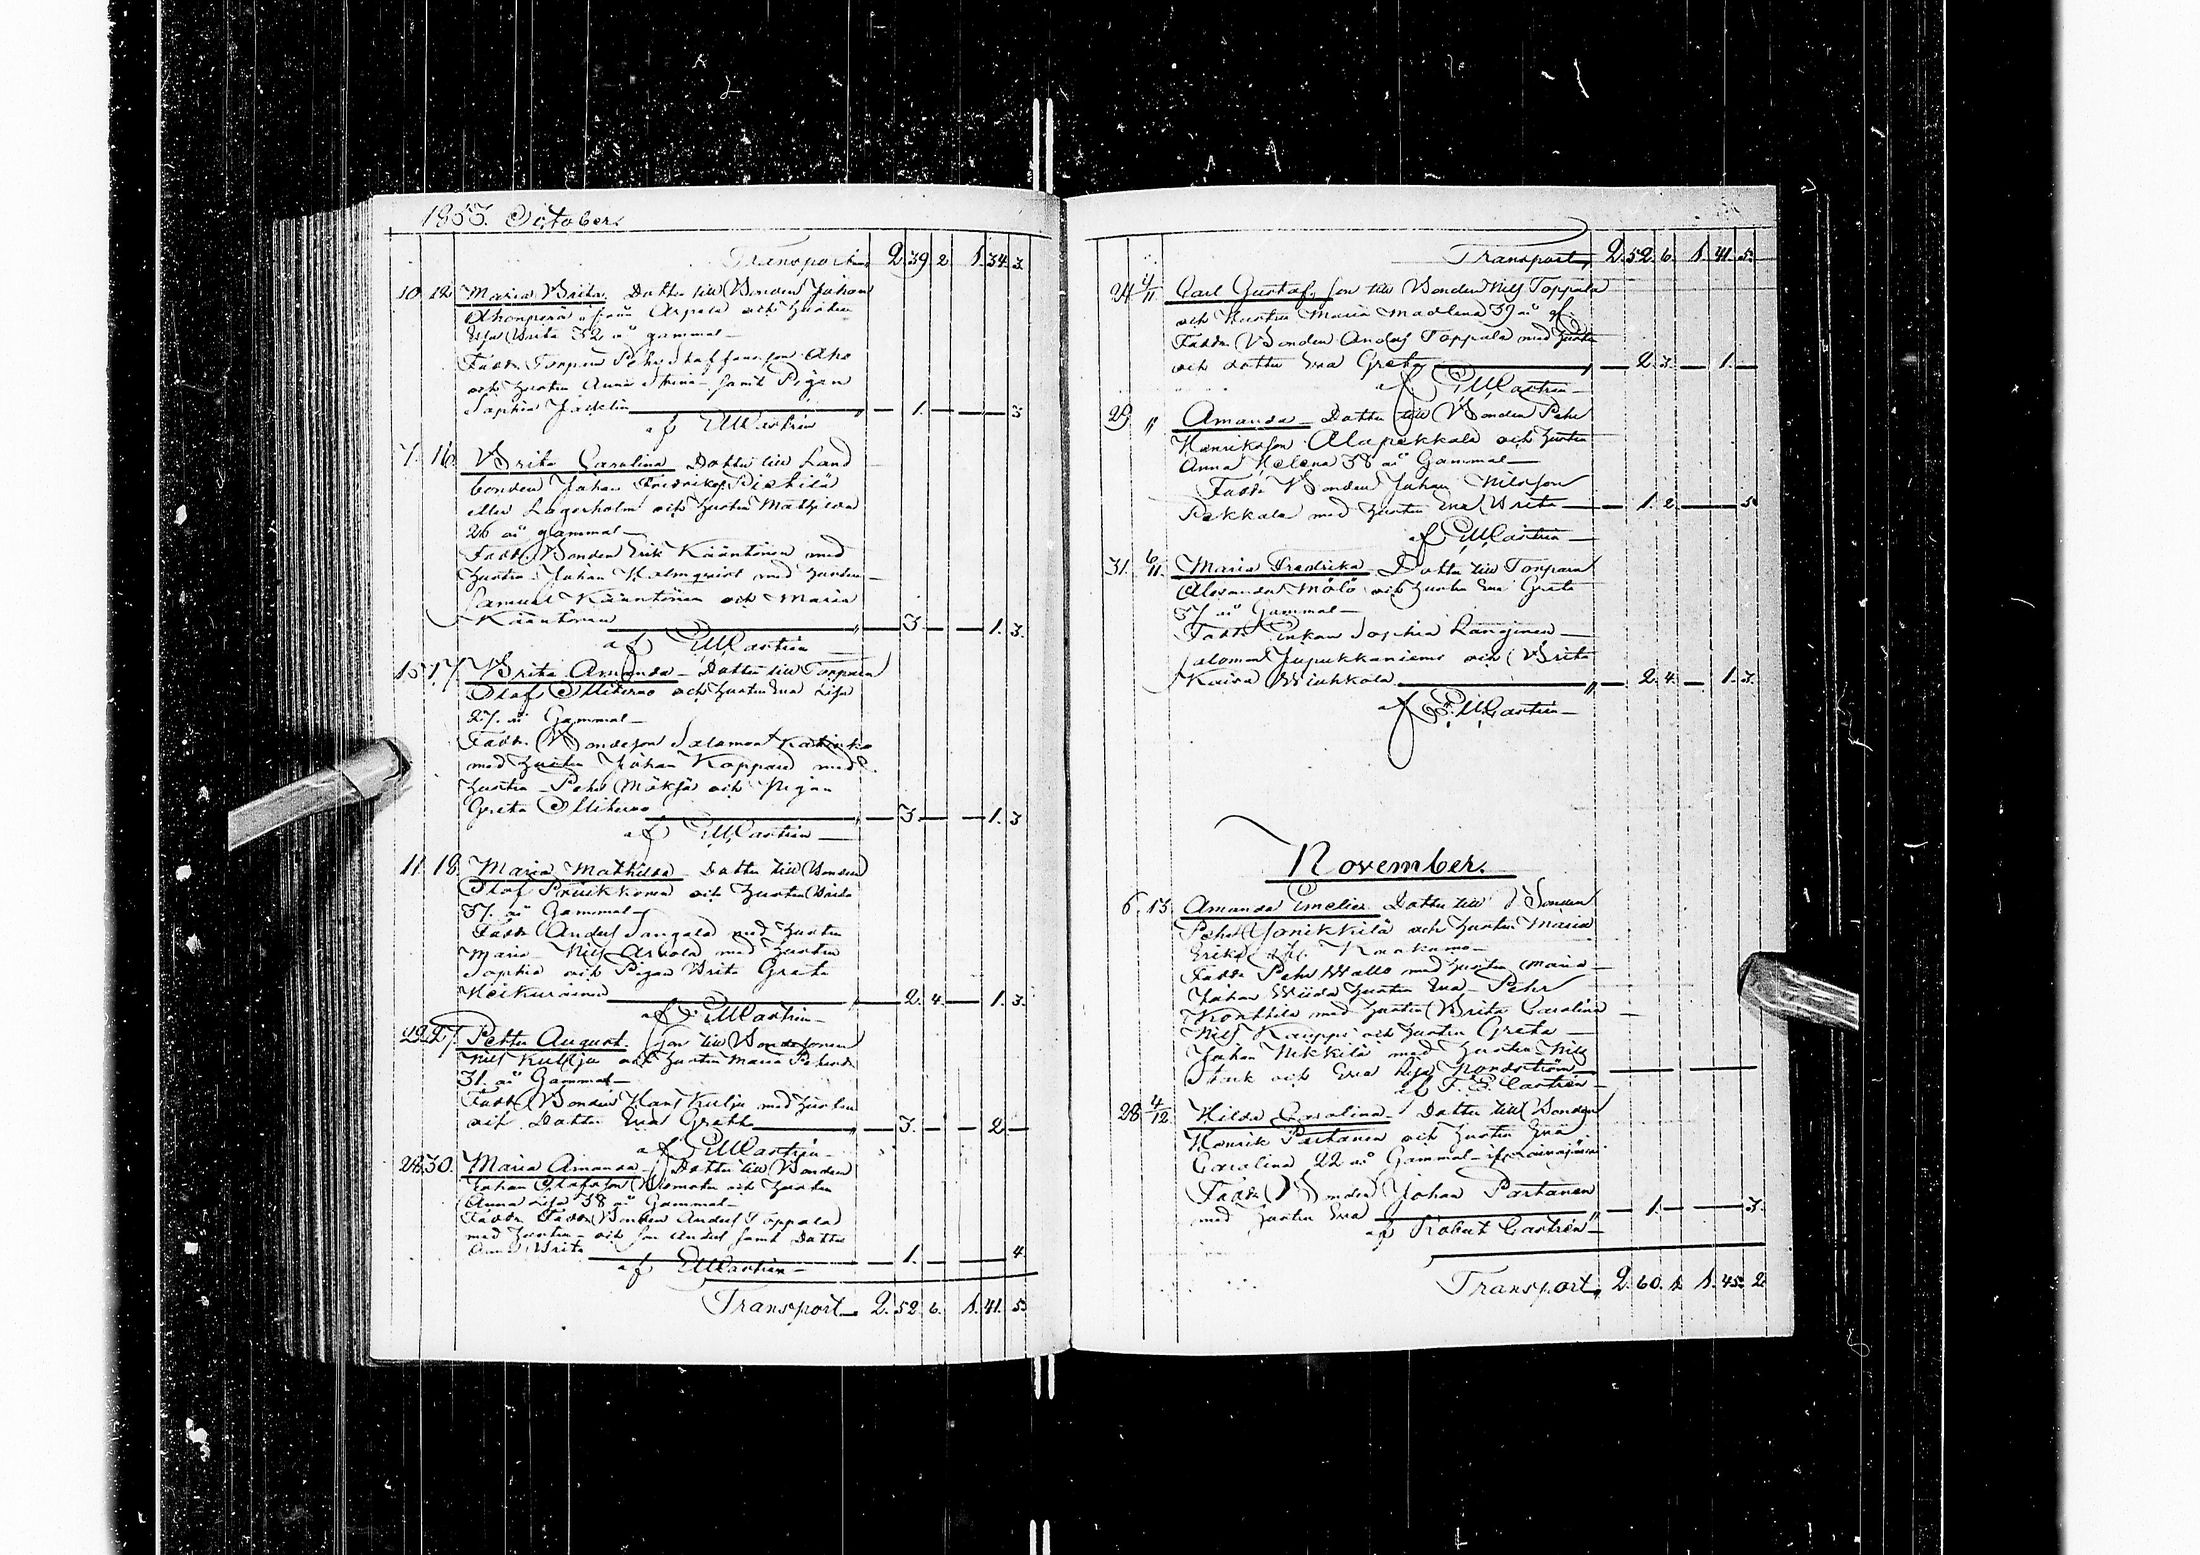 1853. October.
Transport, 2. 39. 2. 1. 34. 3.
10. 12. Maria Brita. Dotter till Bonden Johan
från Arpela och Hustrun
Brita 32 år gammal
Fadd. Torpar Pehr Staffansson Aho
och Hustrun Anna Stina samt Pigan
Sophia Jäcklin — 1. — 3
af E M Castrén
7. 16. Brita Carolina Dotter till Land
bonden Johan Fredriksson
eller Lagerholm och Hustrun Mathilda
26 år gammal
Fadd. Bonden Erik Kääntönen med
Hustru Johan Malmqvist med Hustru
Samuel Kääntönen och Maria
Kääntönen — 3. — 1. 3.
af E M Castrén
15 17. Brita Amanda Dotter till Torparen
Olof och Hustrun Eva Lisa
27. år Gammal
Fadd. Bondeson Salomon
med Hustrun Johan Koppara med
Hustru Pehr och Pigan
Greta — 3. — 1. 3
af E M Castrén
11. 18. Maria Mathilda Dotter till Bonden
Olof Pruikkonen och Hustrun Brita
37. år Gammal
Fadd. Anders Sangala med Hustru
Maria Nils Arvola med Hustru
Sophia och Pigan Brita Greta
Heikurainen — 2. 4. — 1. 3.
af E M Castrén
22. 27. Petter August. Son till Bondesonen
Nils Kulju och Hustrun Maria
31. år Gammal
Fadd. Bonden Hans Kulju med Hustru
och Dotter Eva Greta — 3. — 2 —
af E M Castrén
28 30. Maria Amanda Dotter till Bonden
Johan Olofsson och Hustrun
Anna Lisa 38 år Gammal
Fadd. Bonden Anders Toppala
med Hustru och Son Anders samt Dotter
Anna Brita — 1. — 4
af E M Castrén
Transport 2. 52. 6. 1. 41. 5.
Transport, 2. 52. 6. 1. 41. 5.
24 4/11 Carl Gustaf, Son till Bonden Nils Toppala
och Hustrun Maria Madlena 39 år gl.
Fadd. Bonden Anders Toppala med Hustru
och dotter Eva Greta — 2. 3. — 1. —
af E M Castrén
29 " Amanda Dotter till Bonden Pehr
Henriksson Alapekkala och Hustru
Anna Helena 38 år Gammal
Fadd. Bonden Johan Nilsson
Pekkala med Hustru Eva Brita — 1. 2. — 5
af E M Castrén
31. 6/11. Maria Fredrika Dotter till Torparen
Alexander Mölö och Hustru Eva Greta
37 år Gammal
Fadd. Enkan Sophia Länginen
Salomon Jupukkaniemi och Brita
Kaisa Wiuhkola — 2. 4. — 1. 3.
af E M Castrén
November.
6. 13. Amanda Emelie Dotter till Bonden
Pehr Yönikkilä och Hustru Maria
Erika Kaakamo
Fadd. Pehr Wallo med Hustru Maria
Johan Wiida Hustru Eva Pehr
Korkkila med Hustru Brita Carolina
Nils Kauppi och Hustru Greta
Johan Nikkilä med Hustru Nils
Stark och Eva Lisa Nordström
af F. E. Castrén
28 4/12 Hilda Carolina Dotter till Bonden
Henrik Partanen och Hustru Eva
Carolina 22 år Gammal
Fadd. Bonden Johan Partanen
med Hustru Eva — 1. — 3.
af Robert Castrén
Transport, 2. 60. 1. 1. 45. 2